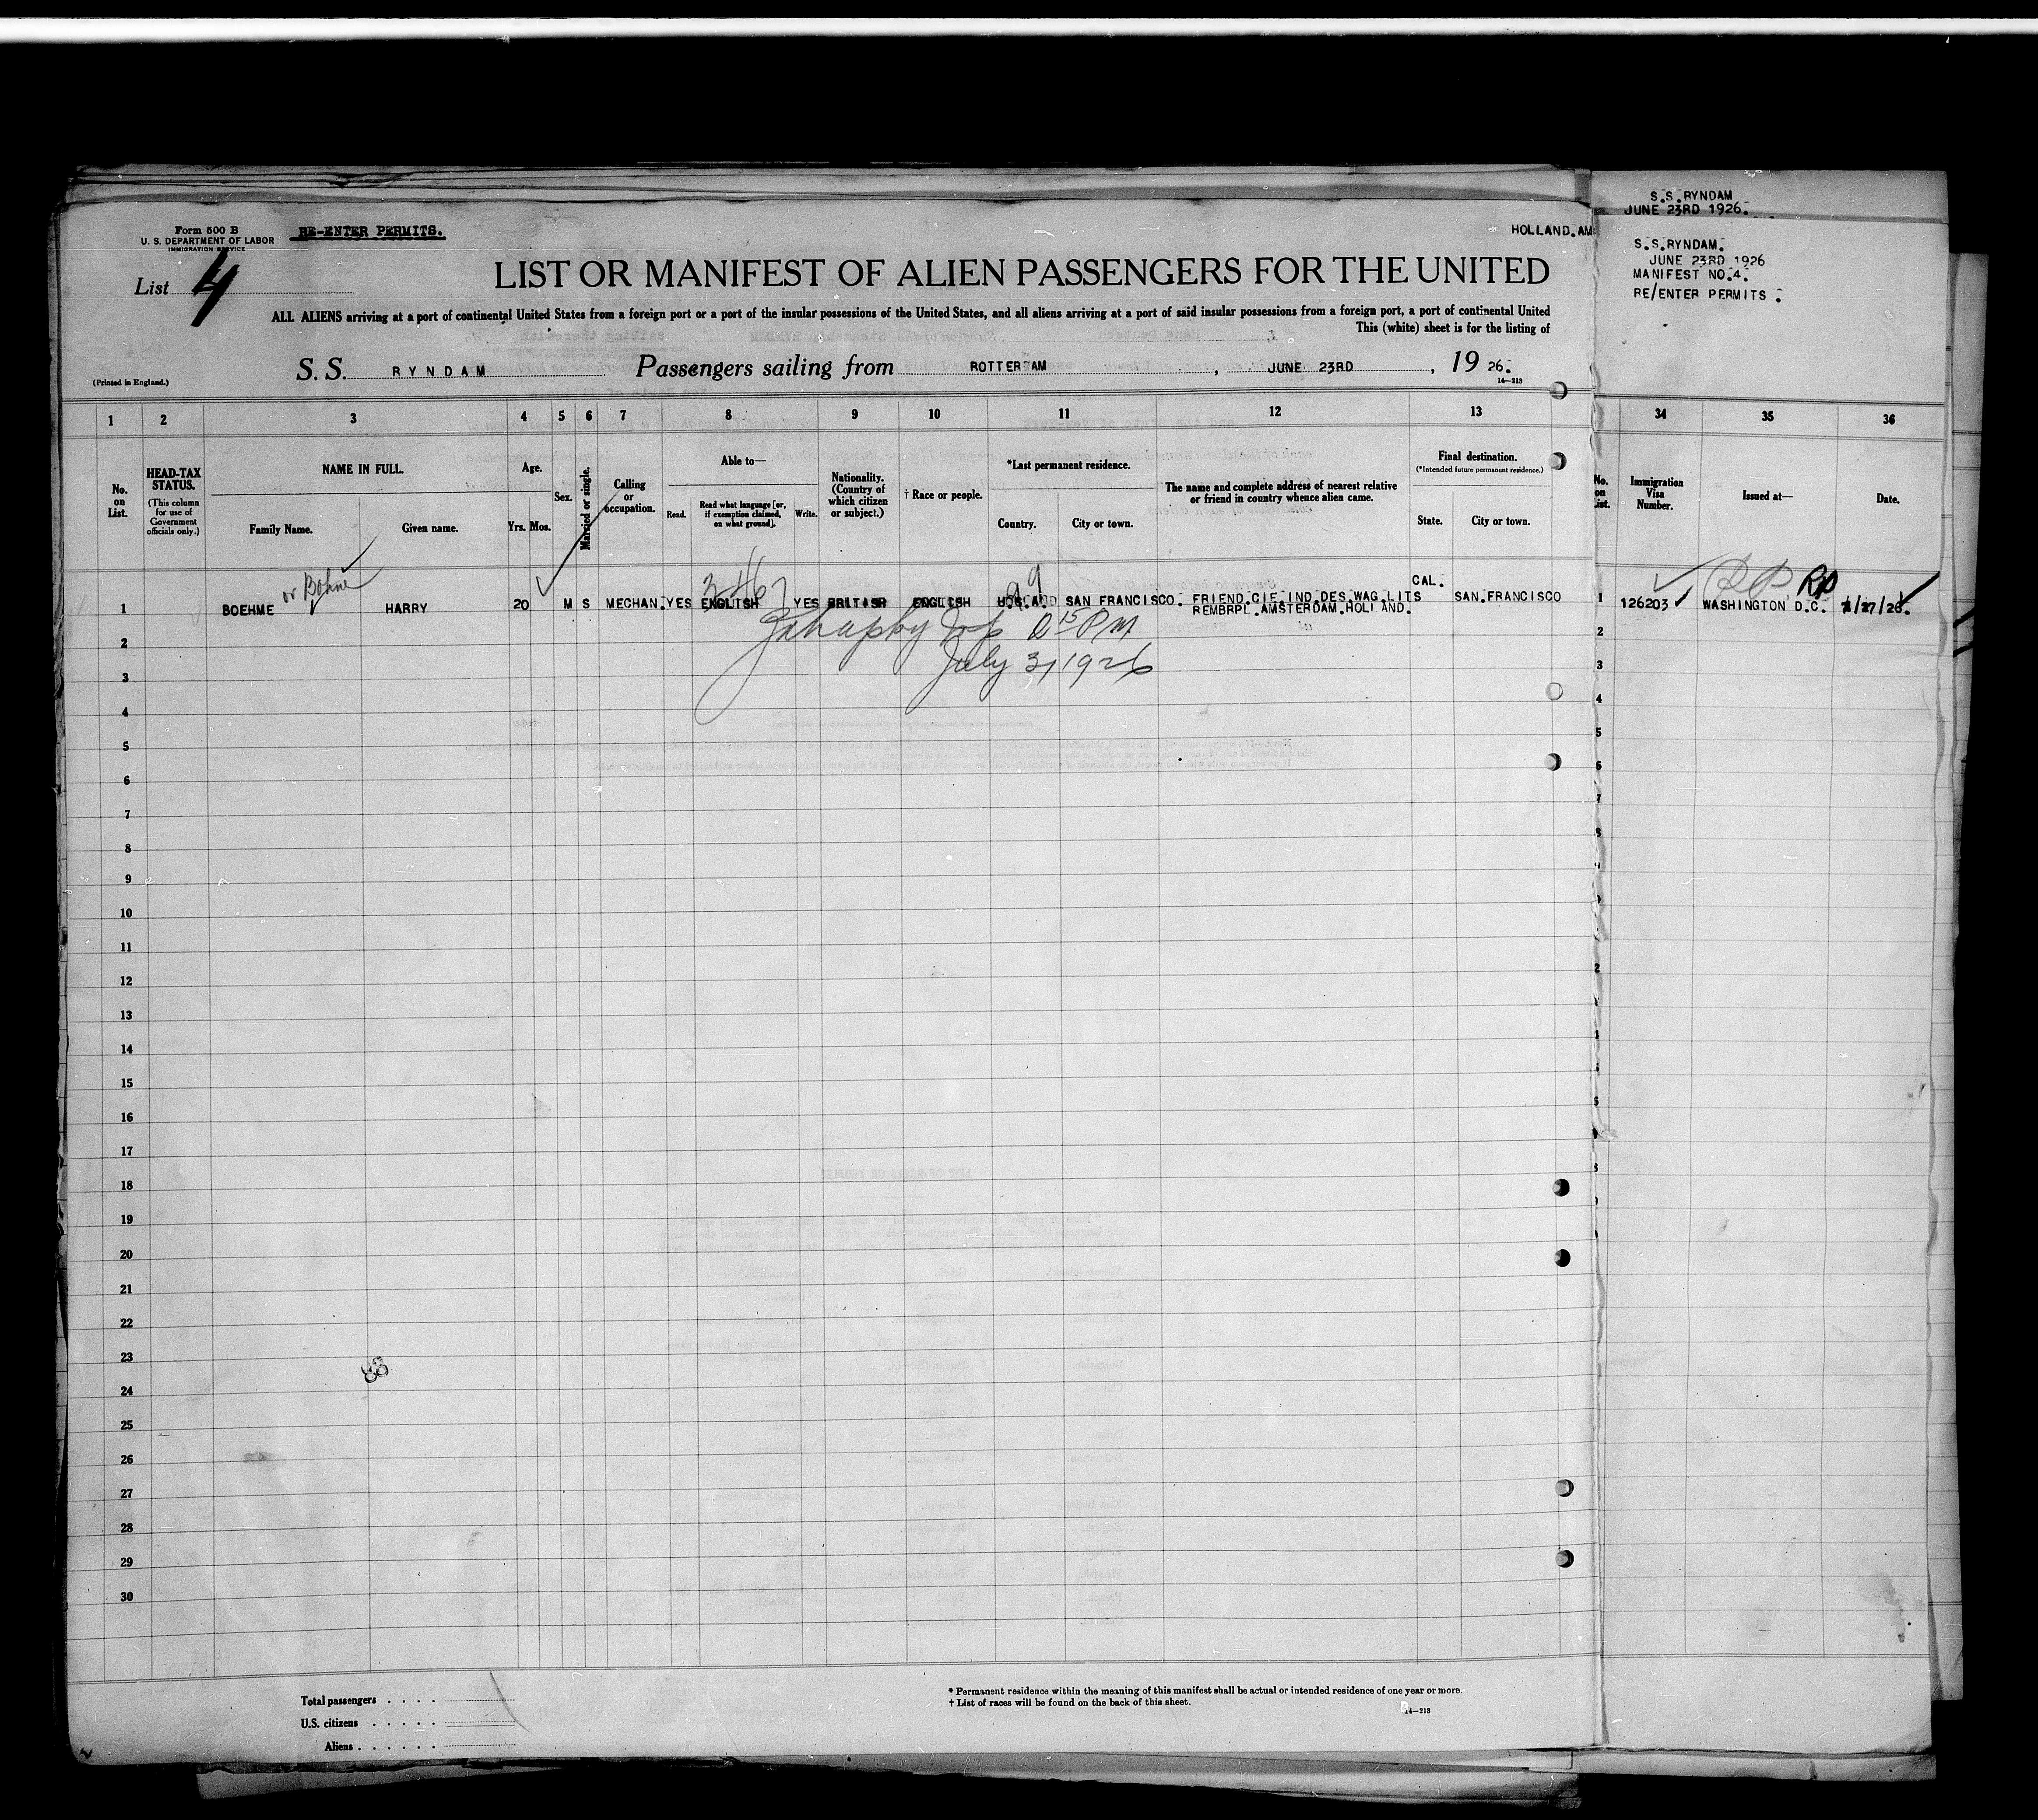 S.S.RYNDAM
JUNE 23RD 1926.
Form 500 B
U. S. DEPARTMENT OF LABOR
IMMIGRATION SERVICE
RE-ENTER PERMITS.
HOLLAND.AM
S.S.RYNDAM.
JUNE 23RD 1926
MANIFEST NO.4.
RE/ENTER PERMITS .
List 4
LIST OR MANIFEST OF ALIEN PASSENGERS FOR THE UNITED
ALL ALIENS arriving at a port of continental United States from a foreign port or a port of the insular possessions of the United States, and all aliens arriving at a port of said insular possessions from a foreign port, a port of continental United
This (white) sheet is for the listing of
(Printed in England.)
S. S. RYNDAM Passengers sailing from ROTTERDAM , JUNE 23RD , 19 26.
14—213
1 2 3 4 5 6 7 8 9 10 11 12 13 34 35 36
No. on List.
HEAD-TAX STATUS.
(This column for use of Government officials only.)
NAME IN FULL.
Family Name. Given name.
Age.
Yrs. Mos.
Sex.
Married or single.
Calling or occupation.
Able to—
Read. Read what language [or, if exemption claimed, on what ground]. Write.
Nationality. (Country of which citizen or subject.)
† Race or people.
*Last permanent residence.
Country. City or town.
The name and complete address of nearest relative or friend in country whence alien came.
Final destination.
(*Intended future permanent residence.)
State. City or town.
No. on List.
Immigration Visa Number.
Issued at—
Date.
1 BOEHME or Bohne HARRY 20 M S MECHAN. YES ENGLISH YES BRITISH ENGLISH U.S.A. SAN FRANCISCO. FRIEND.CIE IND DES WAG LITS CAL. SAN.FRANCISCO
REMBRPL.AMSTERDAM.HOLLAND.
1 126203 WASHINGTON D.C. RP
July 3, 1926
2
3
4
5
6
7
8
9
10
11
12
13
14
15
16
17
18
19
20
21
22
23
24
25
26
27
28
29
30
88
Total passengers . . . .
U.S. citizens . . . . .
Aliens . . . . . .
* Permanent residence within the meaning of this manifest shall be actual or intended residence of one year or more.
† List of races will be found on the back of this sheet.
14—213